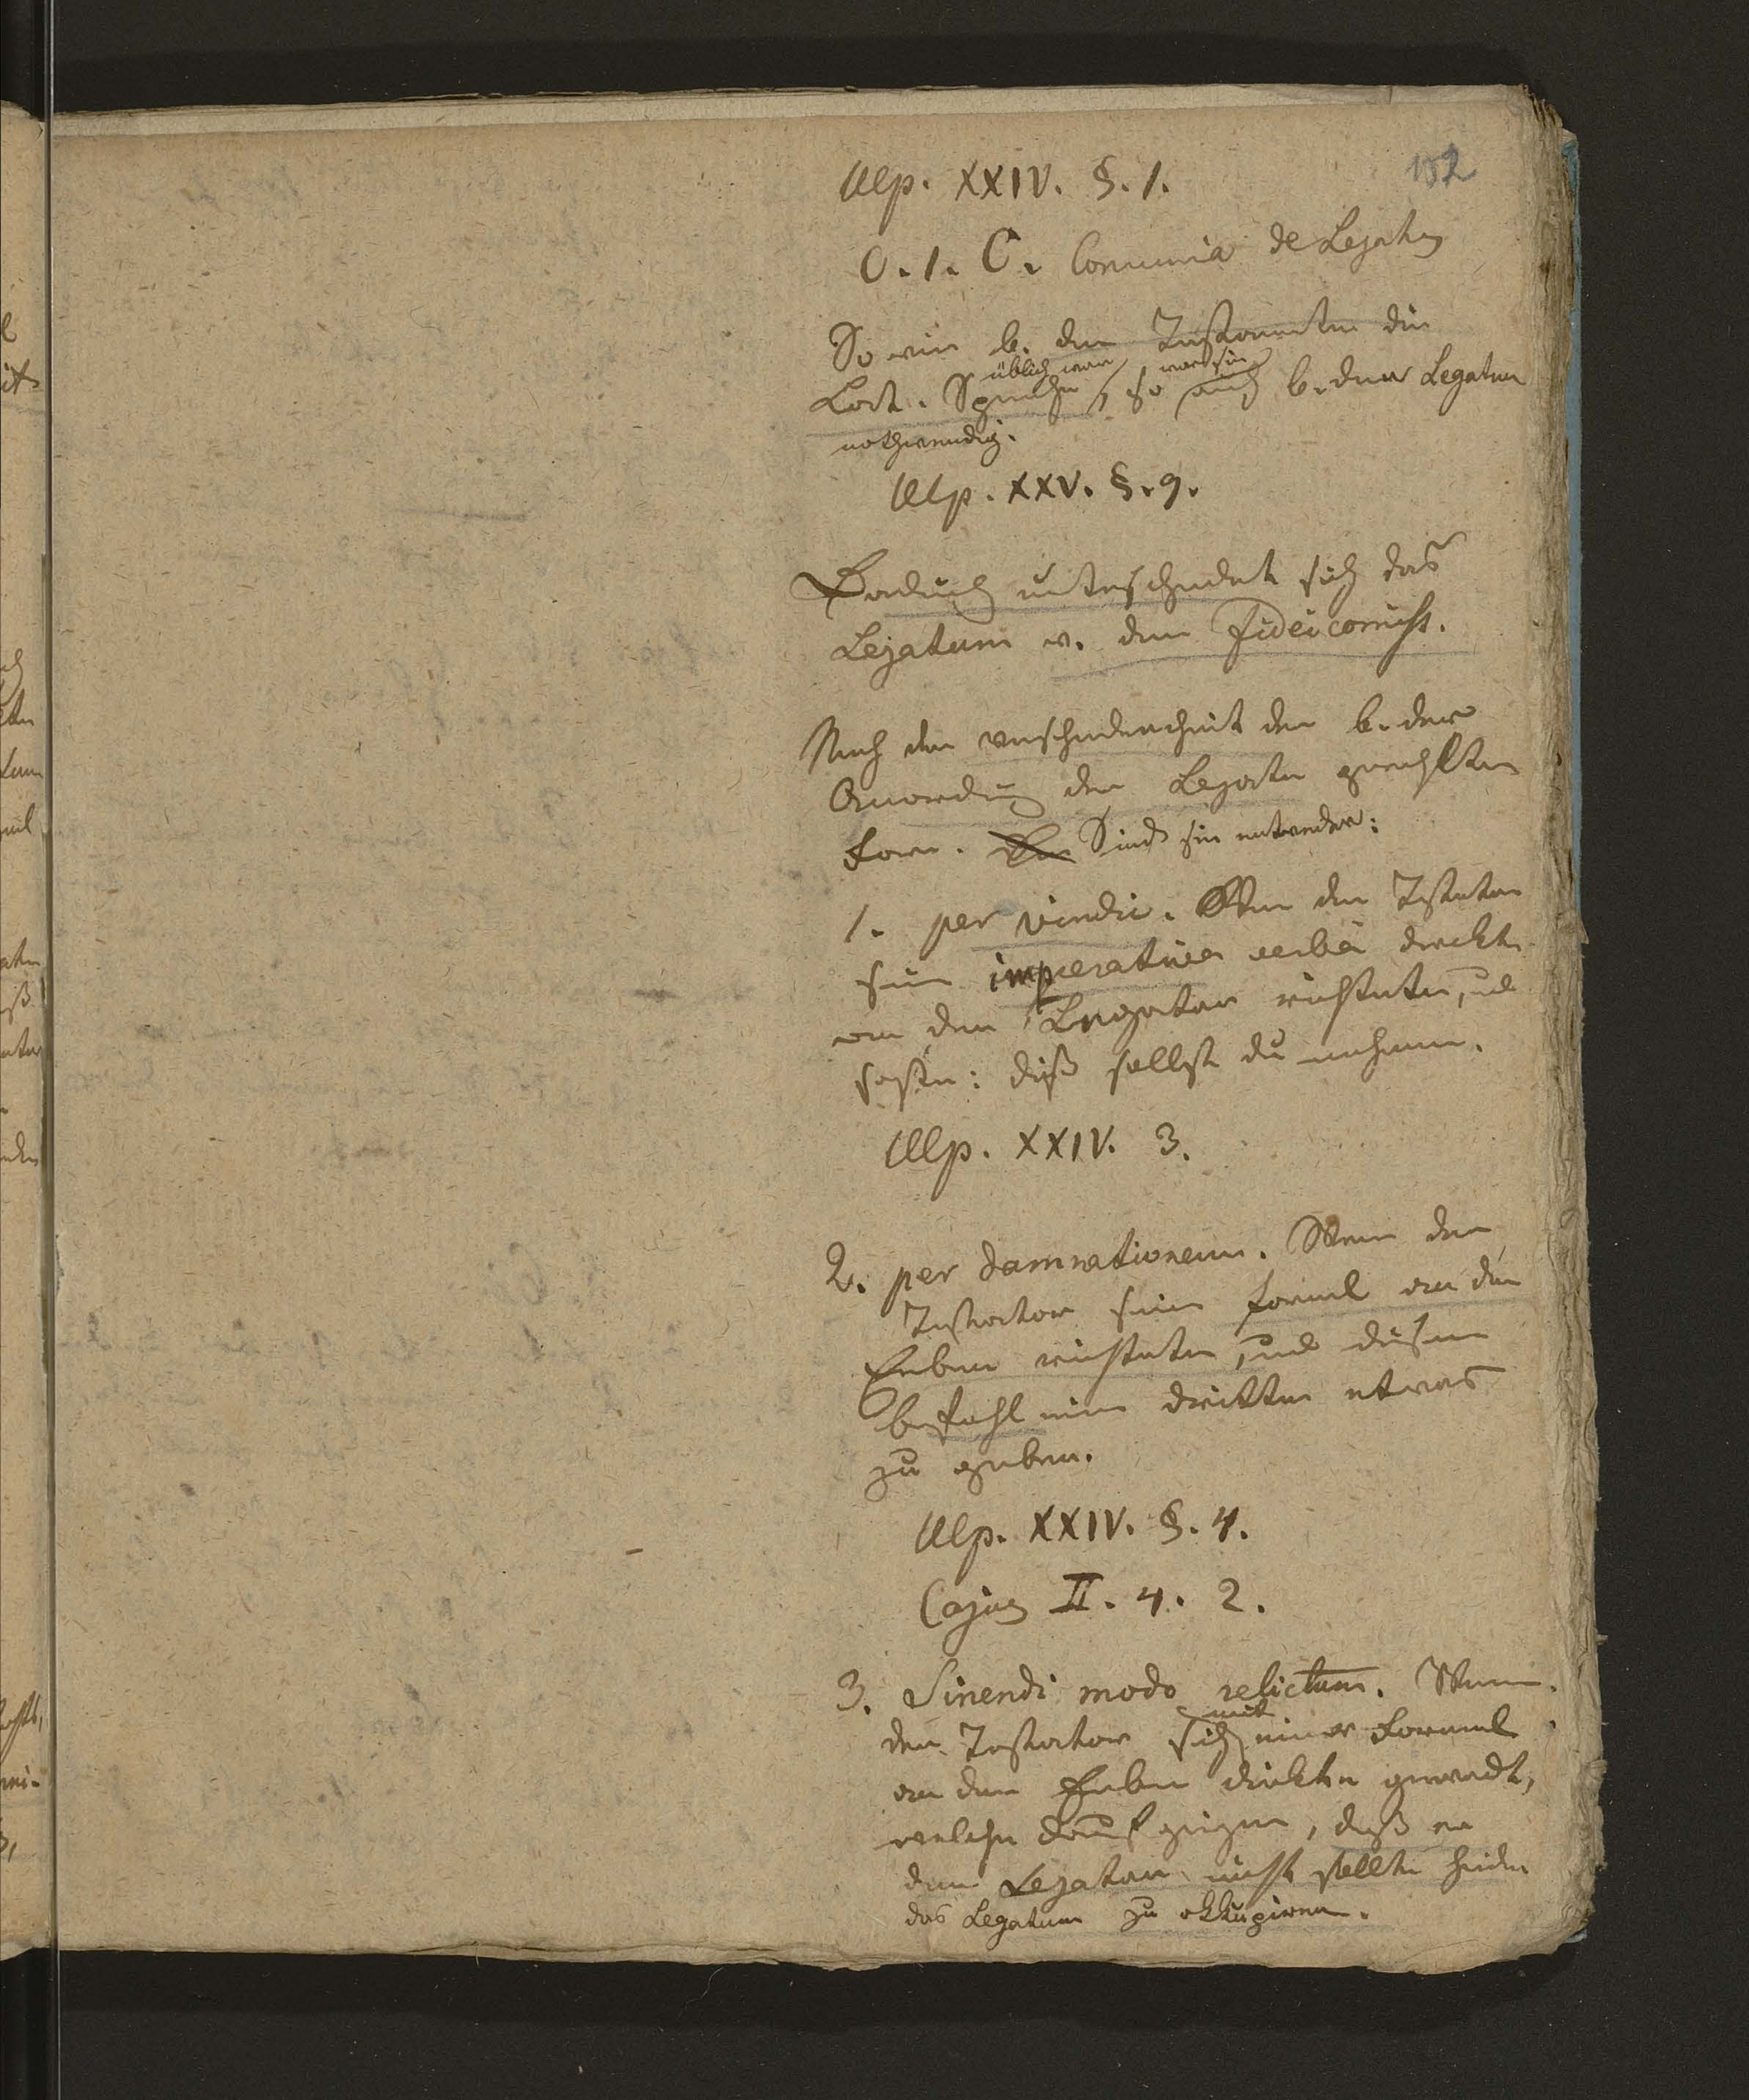 152
Ulp. XXIV. §. 1.
C. 1. C. Comunia de Legatis
So wie b. den Testamenten die
üblich war, war sie
Lat. Sprache, so auch b. den Legaten
nothwendig.
Ulp. XXV. §. 9.
Dadurch unterscheidet sich das
Legatum v. dem Fideicomiss.
Nach der Verschiedenheit der b. der
Anordnung der Legate gewählten
Form. Sind sie entweder:
1. per vindic. Wenn der Testator
seine imperativa verba direkte
an den Legatar richtete, und
sagte: diß sollst du nehmen.
Ulp. XXIV. 3.
2. per damnationem. Wenn der
Testator seine Formel an den
Erben richtete, und diesem
befahl einem dritten etwas
zu geben.
Ulp. XXIV. §. 4.
Cajus II. 4. 2.
3. Sinendi modo relictum. Wenn
mit
der Testator sich einer Formel
an den Erben direkte gewandt,
welche darauf gieng, daß er
den Legatar nicht sollte hindern
das Legatum zu okkupiren.